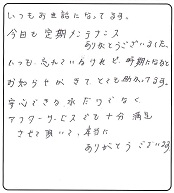 いつもお世話になってます。
今回も定期メンテナンス
ありがとうございました。
いつも忘れているけれど、時期になると
お知らせがきてとても助かってます。
安心できる水だけでなく
アフターサービスでも十分満足
させて頂いて、本当に
ありがとうございます。